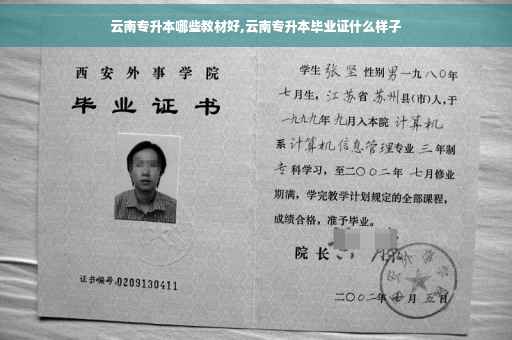 云南专升本哪些教材好,云南专升本毕业证什么样子
西安外事学院
毕业证书
证书编号:0209130411
学生 张坚 性别男一九八〇年
七月生,江苏省苏州县(市)人,于
一九九九年九月入本院 计算机
系计算机信息管理专业 三年制
专科学习,至二〇〇二年 七月修业
期满,学完教学计划规定的全部课程,
成绩合格,准予毕业。
院长
二〇〇二年 月 五日